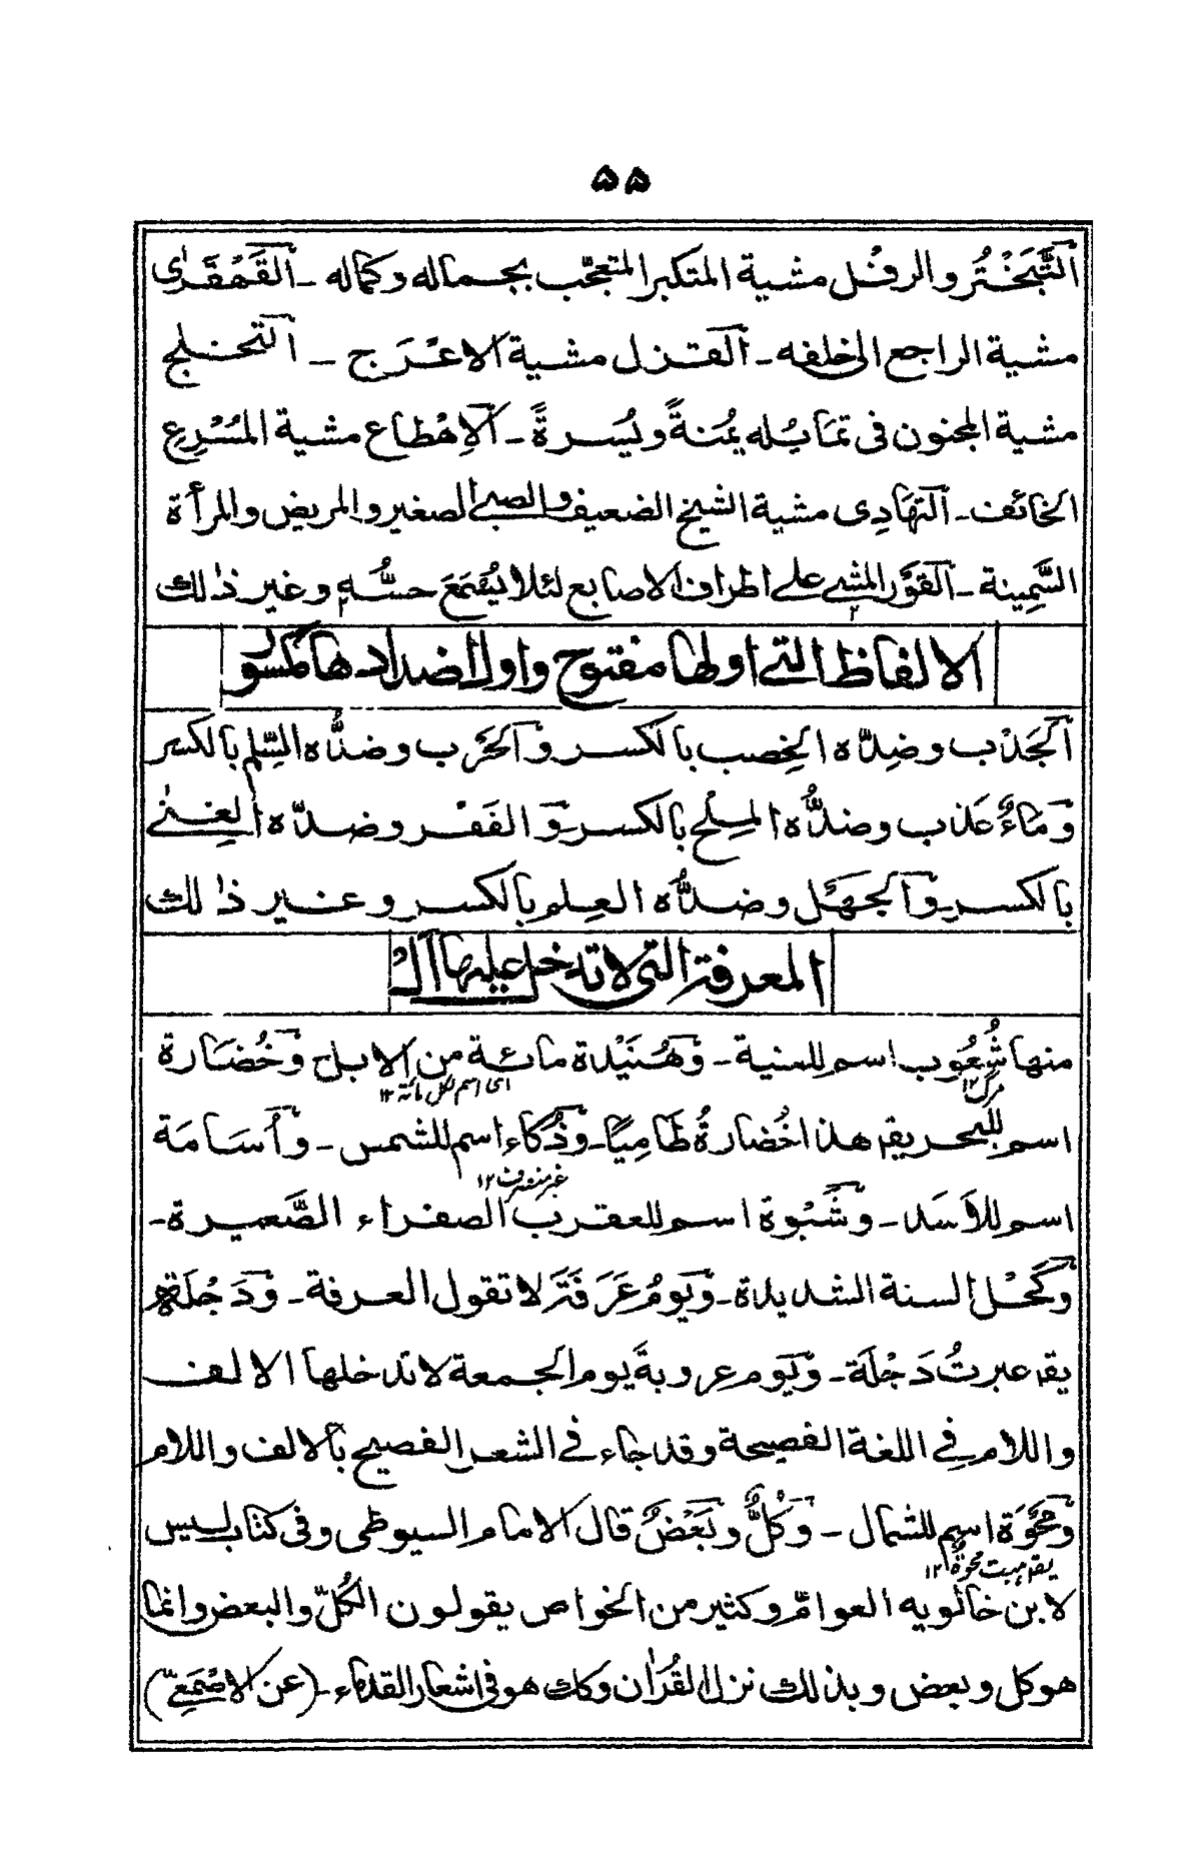 ۵۵
اَلتَّبَخْتُر والرفْل مشية المتكبر المتعجّب بجماله وكماله ـ اَلقَهْقَرٰى
مشية الراجع الى خلفه ـ اَلقَزل مشية الاعْرَج ـ اَلتخلج
مشية المجنون فى تمَايُله يُمنةً ويُسرةً ـ اَلاِهْطاع مشية المُسْرِع
الخائف ـ اَلتهَادِى مشية الشيخ الضعيف والصبى الصغير والمريض والمرأة
السَّمِينة ـ اَلقوَّر المشى على اطراف الاصابع لئلا يُسْمَعَ حسُّه وغير ذٰلك
الالفاظ التى اولها مفتوح واول اضدادها مكسور
اَلجَدْب وضِدّه الخِصب بالكسر وَالحَرْب وضدُّه السِّلم بالكسر
وَماءٌ عَذب وضدُّه المِلح بالكسر وَ الفَقْر وضدّه الغِنٰى
بالكسر وَالجَهَل وضدُّه العِلم بالكسر وغير ذٰلك
المعرفة التى لا تدخل عليها اَلْ
منها شُعُوب اسم للمنية ـ وَهُنَيْدة مائة من الابل وَخُضَارة
اى اسم لكل مائة ۱۲
اسم للبحر يقـ هذا خُضارةُ طَامِيًا ـ وَذُكاء اسم للشمس ـ وَاُسَامَة
غير منصرف ۱۲
اسم للاَسَد ـ وَشَبْوة اسم للعقرب الصفراء الصَّغيرة ـ
وَكَحْل السنة الشديدة ـ وَيَومُ عَرَفَةَ لا تقول العرفة ـ وَدَجْلَة
يقـ عبرتُ دَجْلَة ـ وَيَوم عروبةَ يوم الجمعة لا تدخلها الالف
واللام فِى اللغة الفصيحة وقد جاء فى الشعر الفصيح بالالف واللام
وَمَحْوَة اسم للشمال ـ وَكُلٌّ وبَعْضٌ قال الامام السيوطى وفى كتاب ليس
يقـ هبت محوةُ ۱۲
لابن خالويه العوامّ وكثير من الخواص يقولون الكُلّ والبعض وانما
هو كل وبعض وبذلك نزل القُرآن وكك هو فى اشعار القدماء ـ (عن الاصْمَعِىّ)